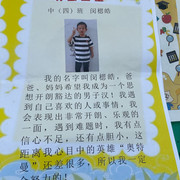 中（四）班 闵楷皓
我的名字叫闵楷皓，爸
爸、妈妈希望我成为一个思
想开朗豁达的男子汉！我遇
到自己喜欢的人或事情，我
会表现出非常开朗、乐观的
一面，遇到难题时，我有点
信心不足，还有点胆小，这
距离我心目中的英雄“奥特
曼”还差很多，所以我一定
会努力的！